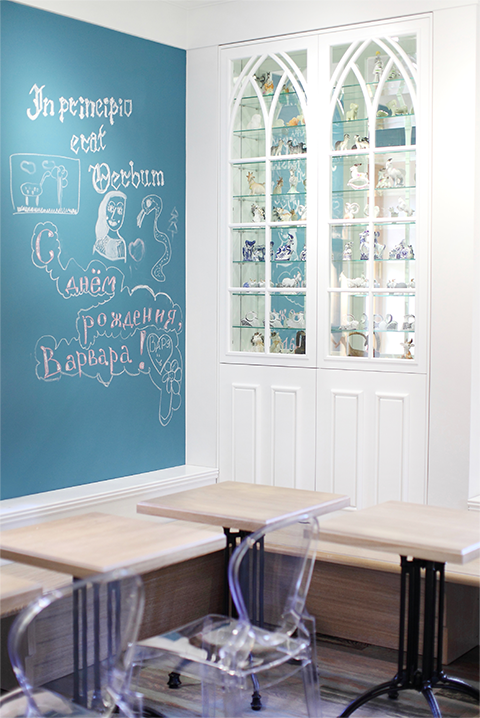 In principio
erat
Verbum
С
днём
рождения,
Варвара!